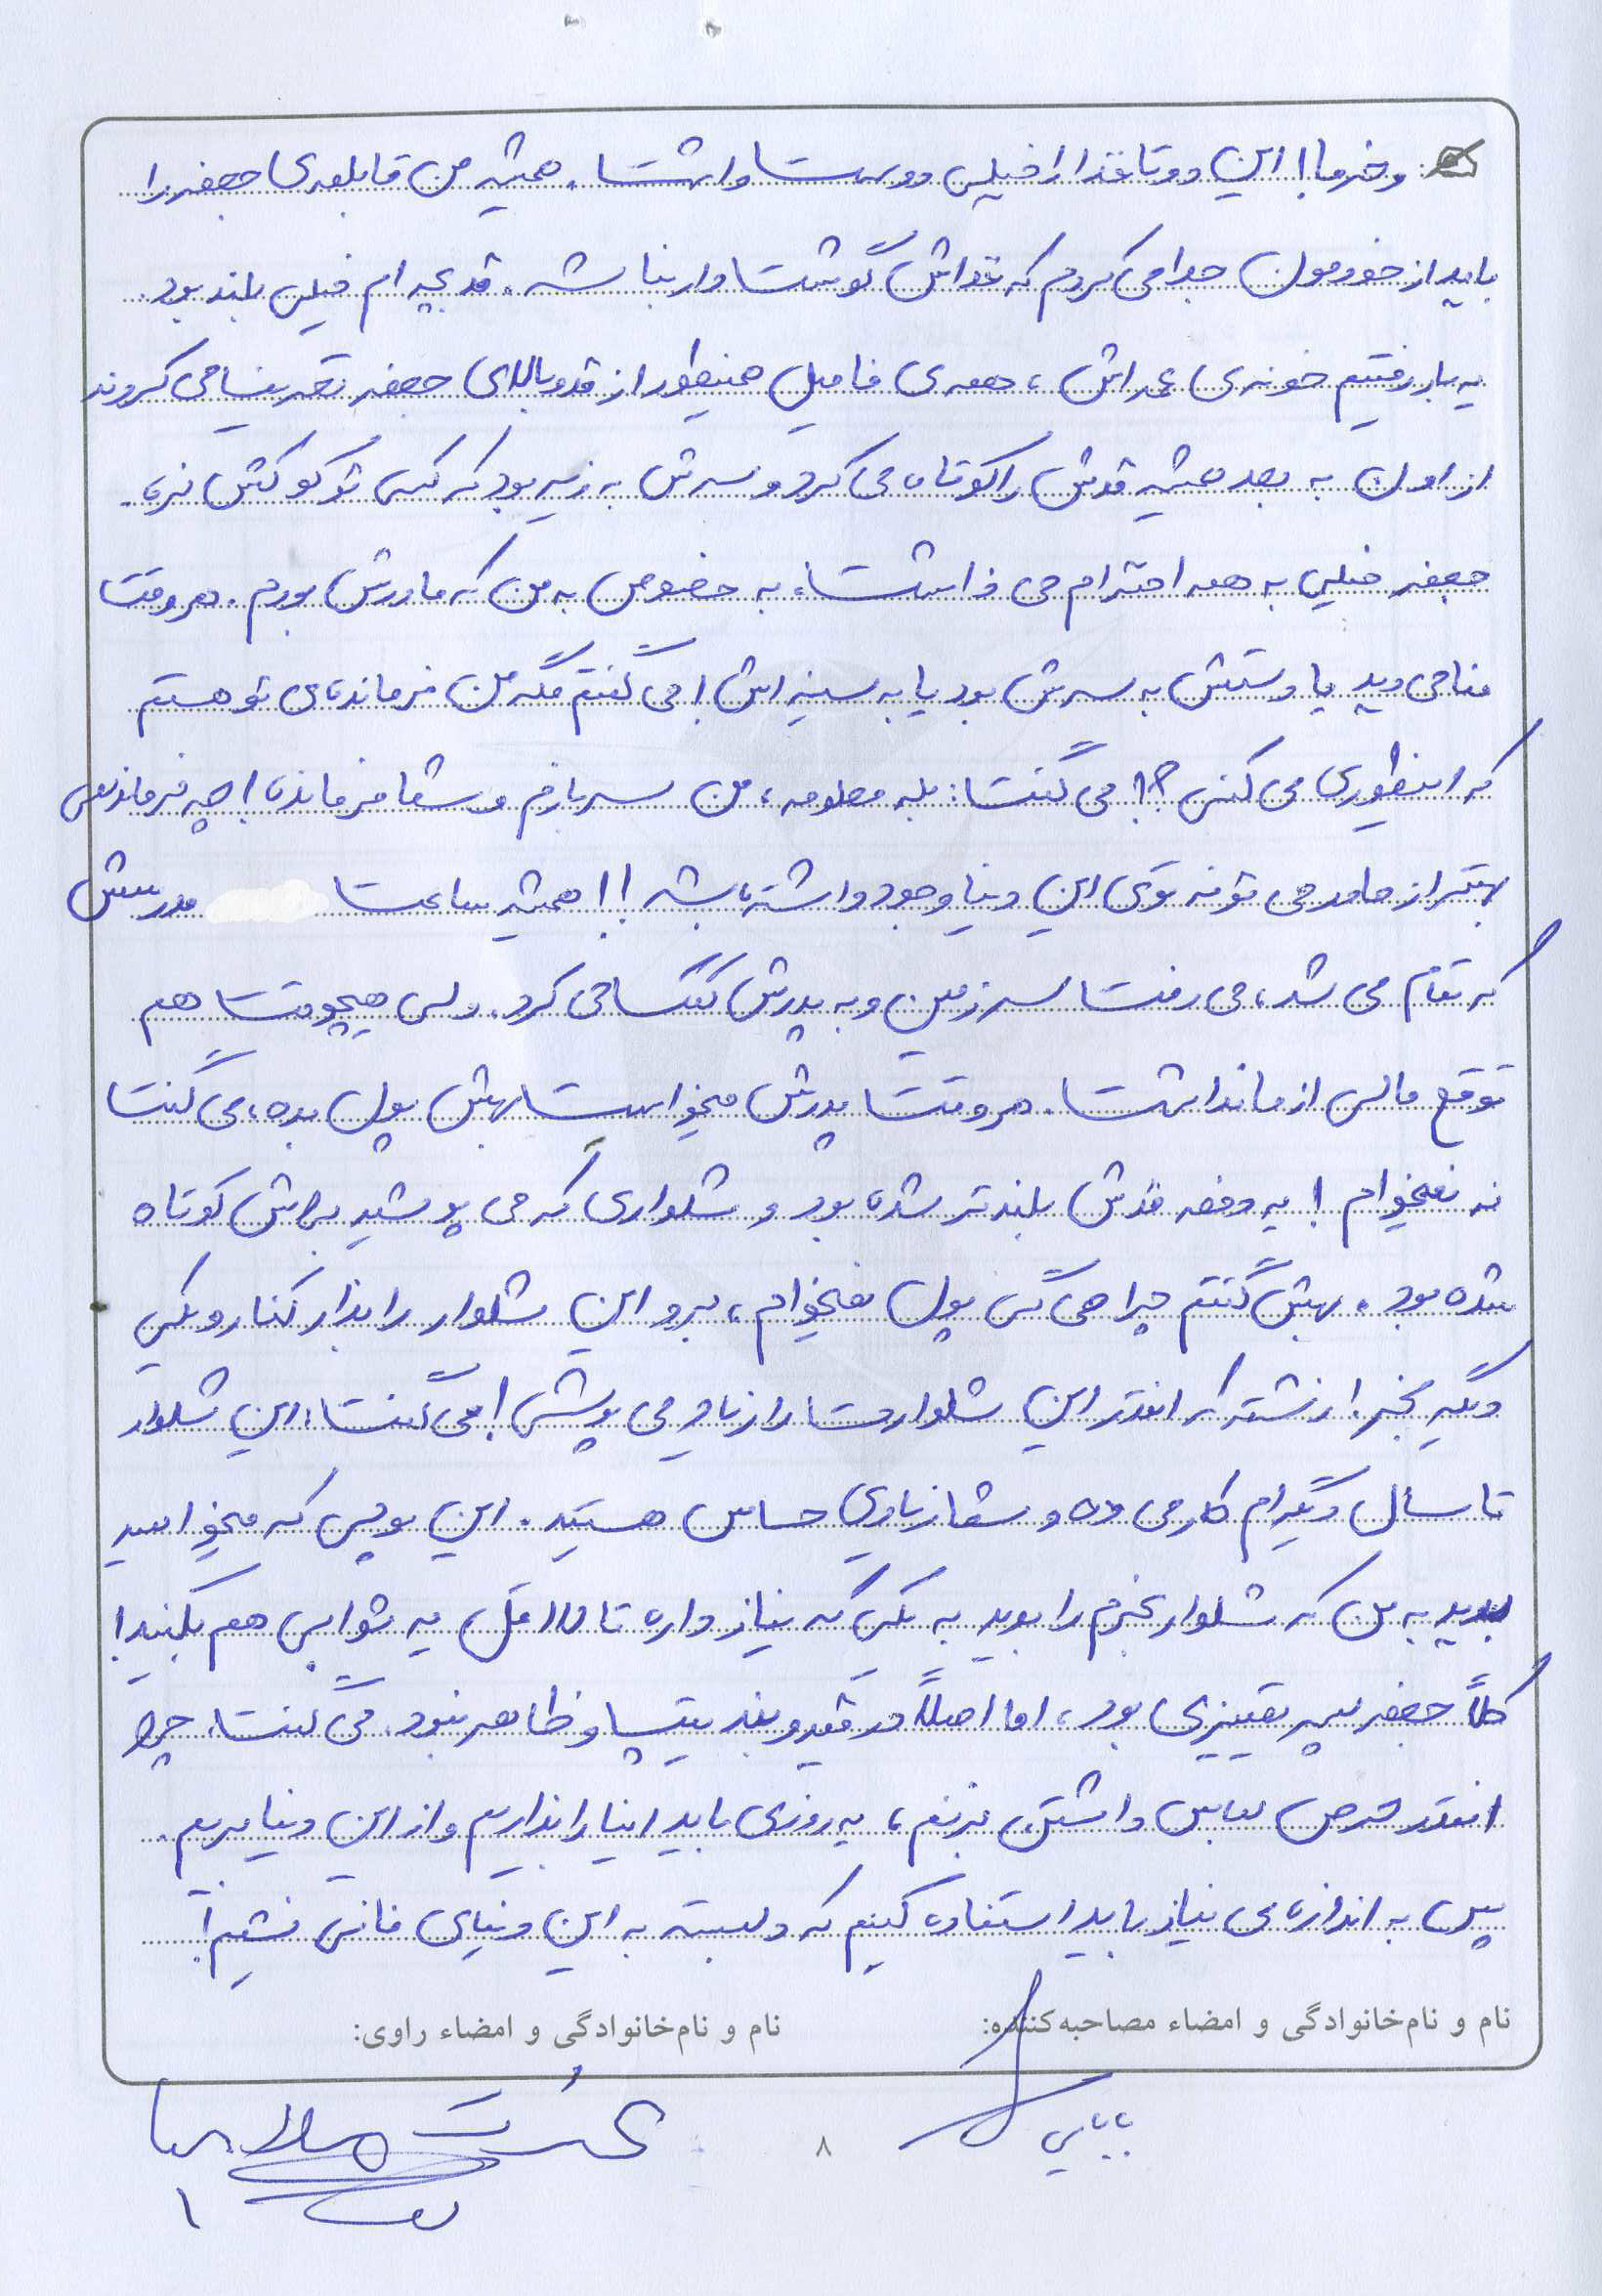 و خرما! این دو تا غذا را خیلی دوست داشت. همیشه من قابلمه‌ی جعفر را
باید از خودمون جدا می‌کردم که غذاش گوشت دار نباشه. قد بچه ام خیلی بلند بود.
یه بار رفتیم خونه‌ی عمه اش، همه‌ی فامیل همینطور از قد و بالای جعفر تعریف می‌کردند
از اون به بعد همیشه قدش را کوتاه می‌کرد و سرش به زیر بود که کسی تو کوکش نره.
جعفر خیلی به همه احترام می ذاشت، به خصوص به من که مادرش بودم. هر وقت
منا می دید یا دستش به سرش بود یا به سینه اش! می گفتم مگه من فرمانده‌ی تو هستم
که اینطوری می کنی؟! می گفت: بله معلومه، من سربازم و شما فرمانده! چه فرماندهی
بهتر از مادر می تونه توی این دنیا وجود داشته باشه!! همیشه ساعت مدرسش
که تمام می شد، می رفت سر زمین و به پدرش کمک می کرد. ولی هیچوقت هم
توقع مالی از ما نداشت. هر وقت پدرش میخواست بهش پول بده، می گفت
نه نمیخوام! یه دفعه قدش بلندتر شده بود و شلواری که می پوشید براش کوتاه
شده بود. بهش گفتم چرا می گی پول نمیخوام، برو این شلوار را بذار کنار و یکی
دیگه بخر! زشته که انقدر این شلوارت را زیاد می پوشی! می گفت: این شلوار
تا سال دیگه ام کار می ده و شما زیادی حساس هستید. این پولی که میخواهید
بدید به من که شلوار بخرم را بدید به یکی که نیاز داره تا لااقل یه ثوابی هم بکنید!
کلاً جعفر پسر تمیزی بود، اما اصلاً در قید و بند تیپ و ظاهر نبود. می گفت: چرا
انقدر حرص لباس داشتن بزنیم، یه روزی باید اینا را بذاریم و از این دنیا بریم.
پس به اندازه‌ی نیاز باید استفاده کنیم که دلبسته به این دنیای فانی نشیم!
نام و نام‌خانوادگی و امضاء مصاحبه‌کننده:
نام و نام‌خانوادگی و امضاء راوی:
بابایی
۸